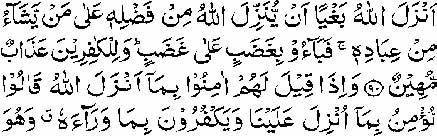 اَنْزَلَ اللّٰهُ بَغْيًا اَنْ يُّنَزِّلَ اللّٰهُ مِنْ فَضْلِهٖ عَلٰى مَنْ يَّشَآءُ
مِنْ عِبَادِهٖ ۚ فَبَآءُوْ بِغَضَبٍ عَلٰى غَضَبٍ ؕ وَلِلْكٰفِرِيْنَ عَذَابٌ
مُّهِيْنٌ ﴿۹۰﴾ وَاِذَا قِيْلَ لَهُمْ اٰمِنُوْا بِمَاۤ اَنْزَلَ اللّٰهُ قَالُوْا
نُؤْمِنُ بِمَاۤ اُنْزِلَ عَلَيْنَا وَيَكْفُرُوْنَ بِمَا وَرَآءَهٗ ۗ وَهُوَ